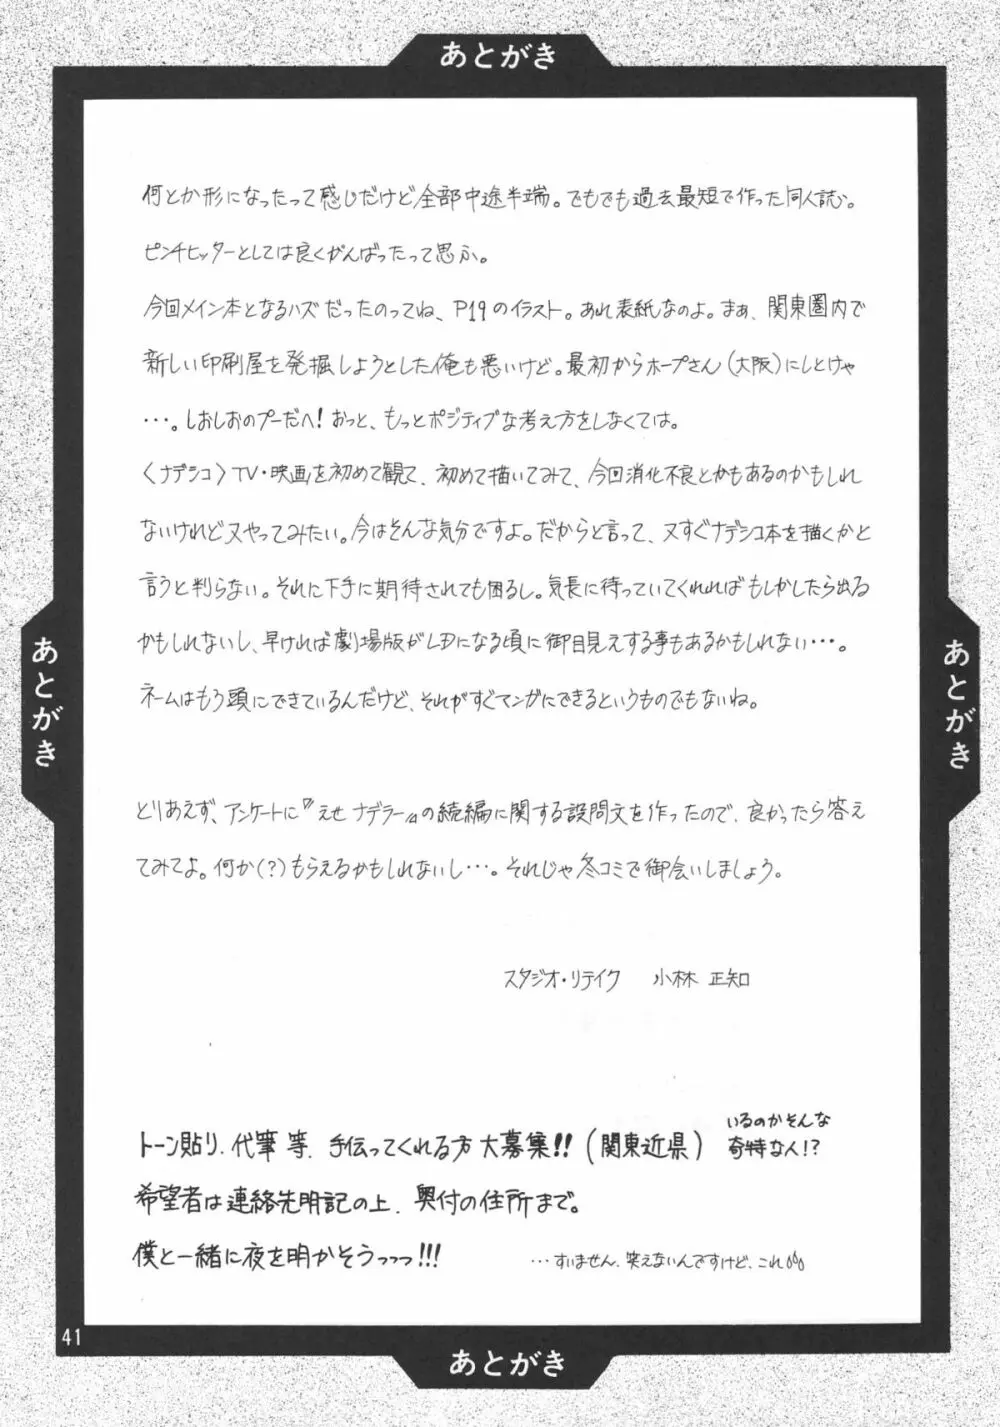 あとがき
何とか形になったって感じだけど全部中途半端。でもでも過去最短で作った同人誌。
ピンチヒッターとしては良くがんばったって思ふ。
今回メイン本となるハズだったのってね、P19のイラスト。あれ表紙なのよ。まぁ、関東圏内で
新しい印刷屋を発掘しようとした俺も悪いけど。最初からホープさん(大阪)にしとけゃ
…。しおしおのプーだへ!おっと、もっとポジティブな考え方をしなくては。
〈ナデシコ〉TV・映画を初めて観て、初めて描いてみて、今回消化不良とかもあるのかもしれ
ないけれど又やってみたい。今はそんな気分ですよ。だからと言って、又すぐナデシコ本を描くかと
言うと判らない。それに下手に期待されても困るし。気長に待っていてくれればもしかしたら出る
かもしれないし、早ければ劇場版がLDになる頃に御目見えする事もあるかもしれない…。
ネームはもう頭にできているんだけど、それがすぐマンガにできるというものでもないね。
とりあえず、アンケートに『えせ ナデラー』の続編に関する設問文を作ったので、良かったら答え
てみてよ。何か(?)もらえるかもしれないし…。それじゃ冬コミで御会いしましょう。
スタジオ・リテイク 小林 正知
トーン貼り、代筆 等、手伝ってくれる方 大募集!!(関東近県)
いるのかそんな
奇特な人!?
希望者は連絡先明記の上、奥付の住所まで。
僕と一緒に夜を明かそうっっっ!!!
…すいません、笑えないんですけど、これ
あとがき
あとがき
あとがき
41